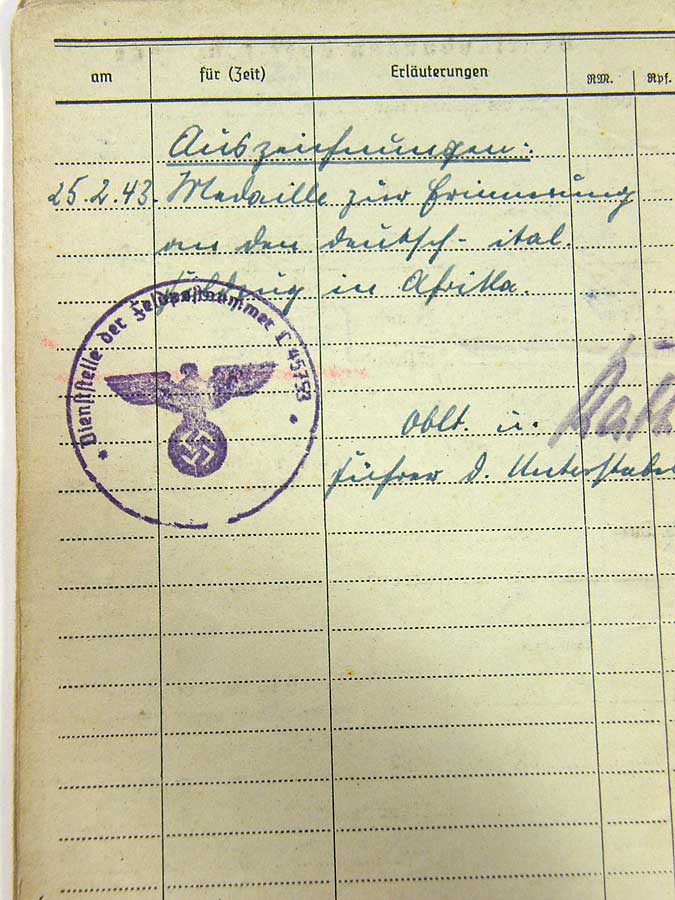 am für (Zeit) Erläuterungen RM. Rpf.
Auszeichnungen:
25.2.43. Medaille zur Erinnerung
an den deutsch-ital.
Feldzug in Afrika.
Dienststelle der Feldpostnummer L 45753
Oblt. u.
Führer d. Unterstabes